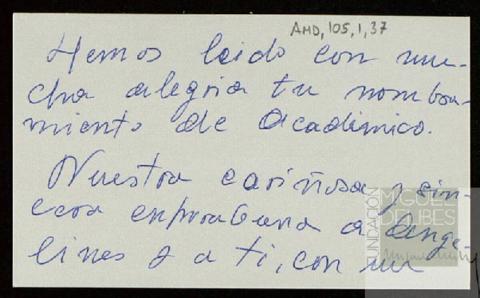 AMD,105,1,37
Hemos leido con mu-
cha alegria tu nombra-
miento de Académico.
Nuestra cariñosa y sin-
cera enhorabuena a Ange-
lines y a ti, con un
FUNDACIÓN
MIGUEL
DELIBES